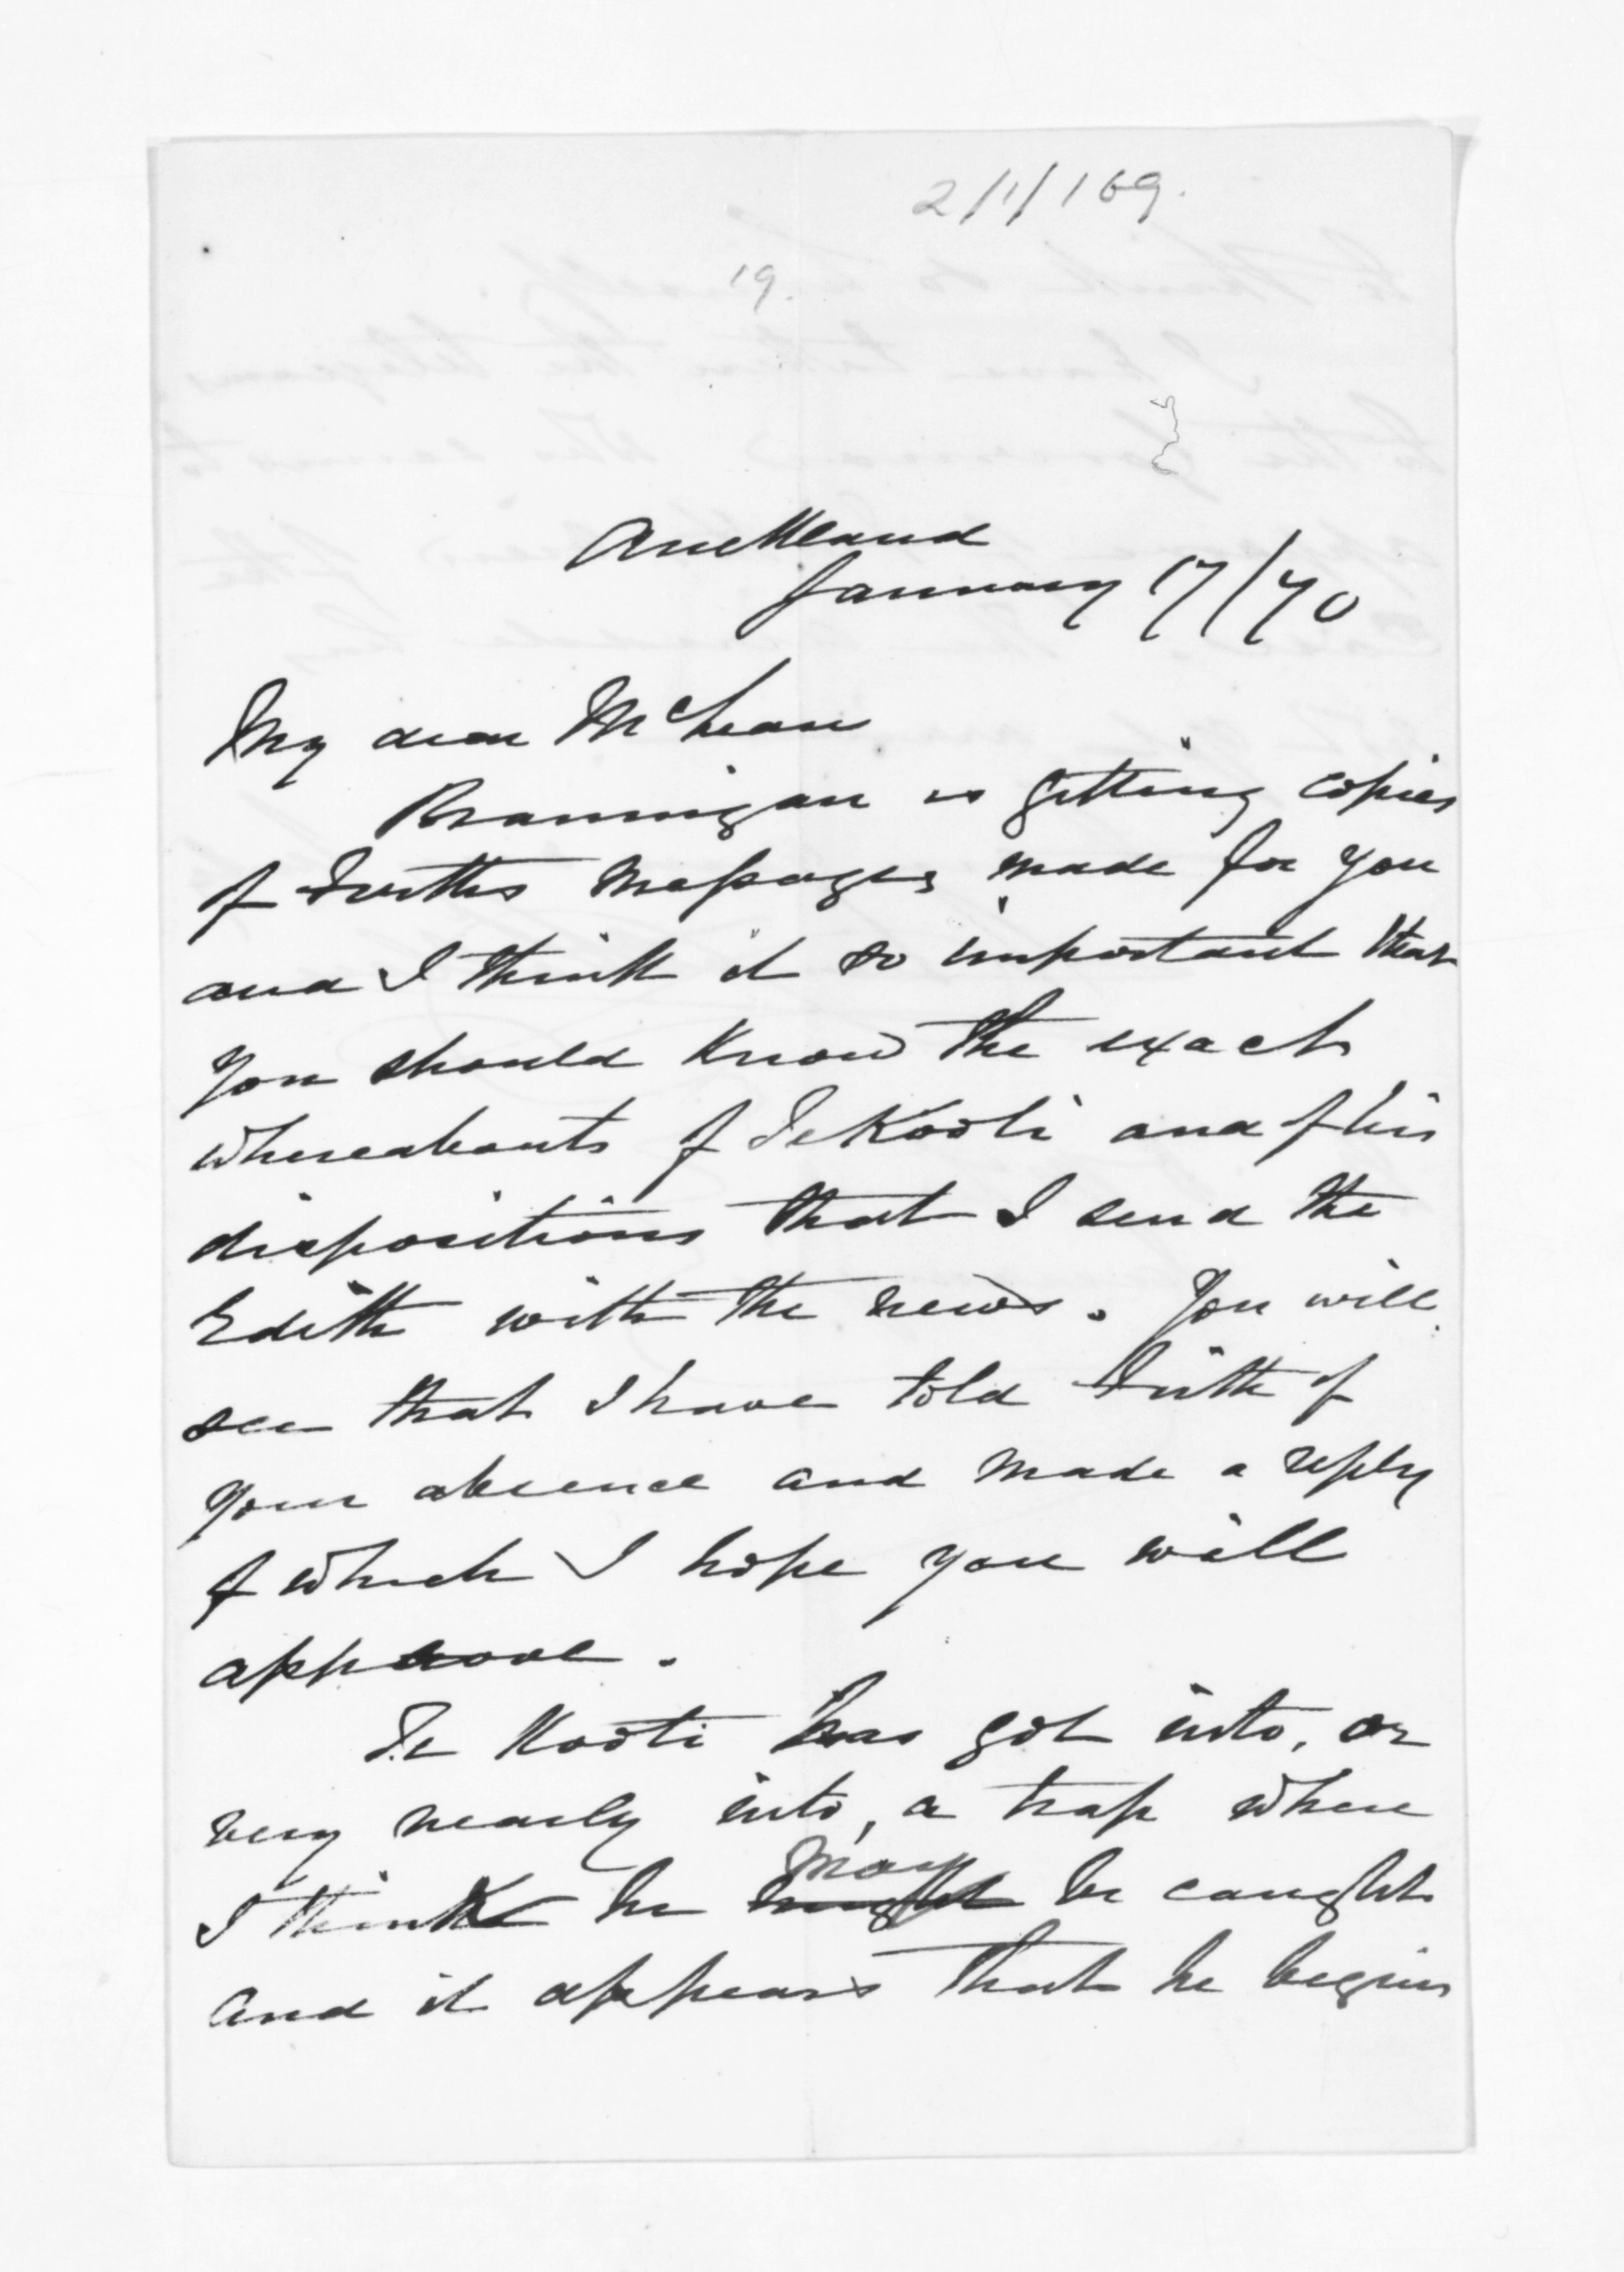 2/1/169.
19.
Auckland
January 17/70
My dear McLean
Brannigan is getting copies
of Firths messages made for you
and I think it so important that
you should know the exact
whereabouts of Te Kooti and of his
dispositions that I send the
Edith with the news. You will
see that I have told Firth of
your absence and made a reply
of which I hope you will
approve.
Te Kooti has got into, or
very nearly into, a trap where
I think he may might be caught
and it appears that he begins